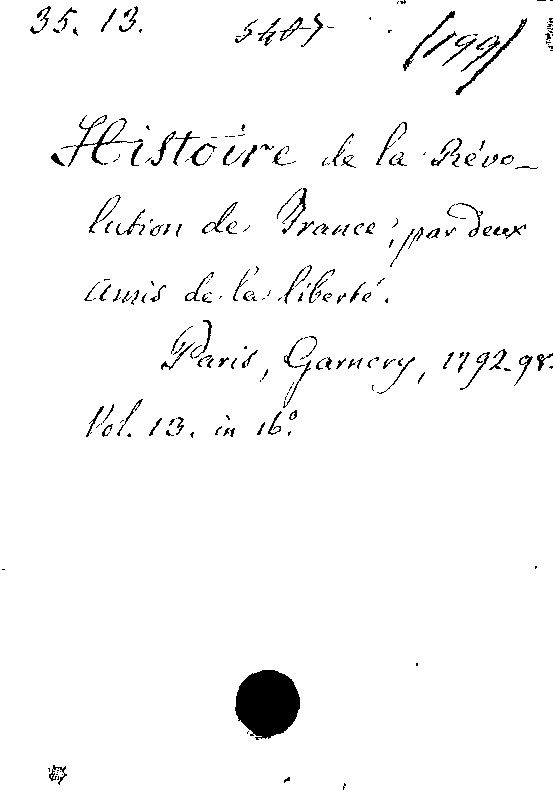 35. 13. 5407 (199)
Histoire de la Révo-
lution de France; par deux
amis de la liberté.
Paris, Garnery, 1792-98.
Vol. 13. in 16º